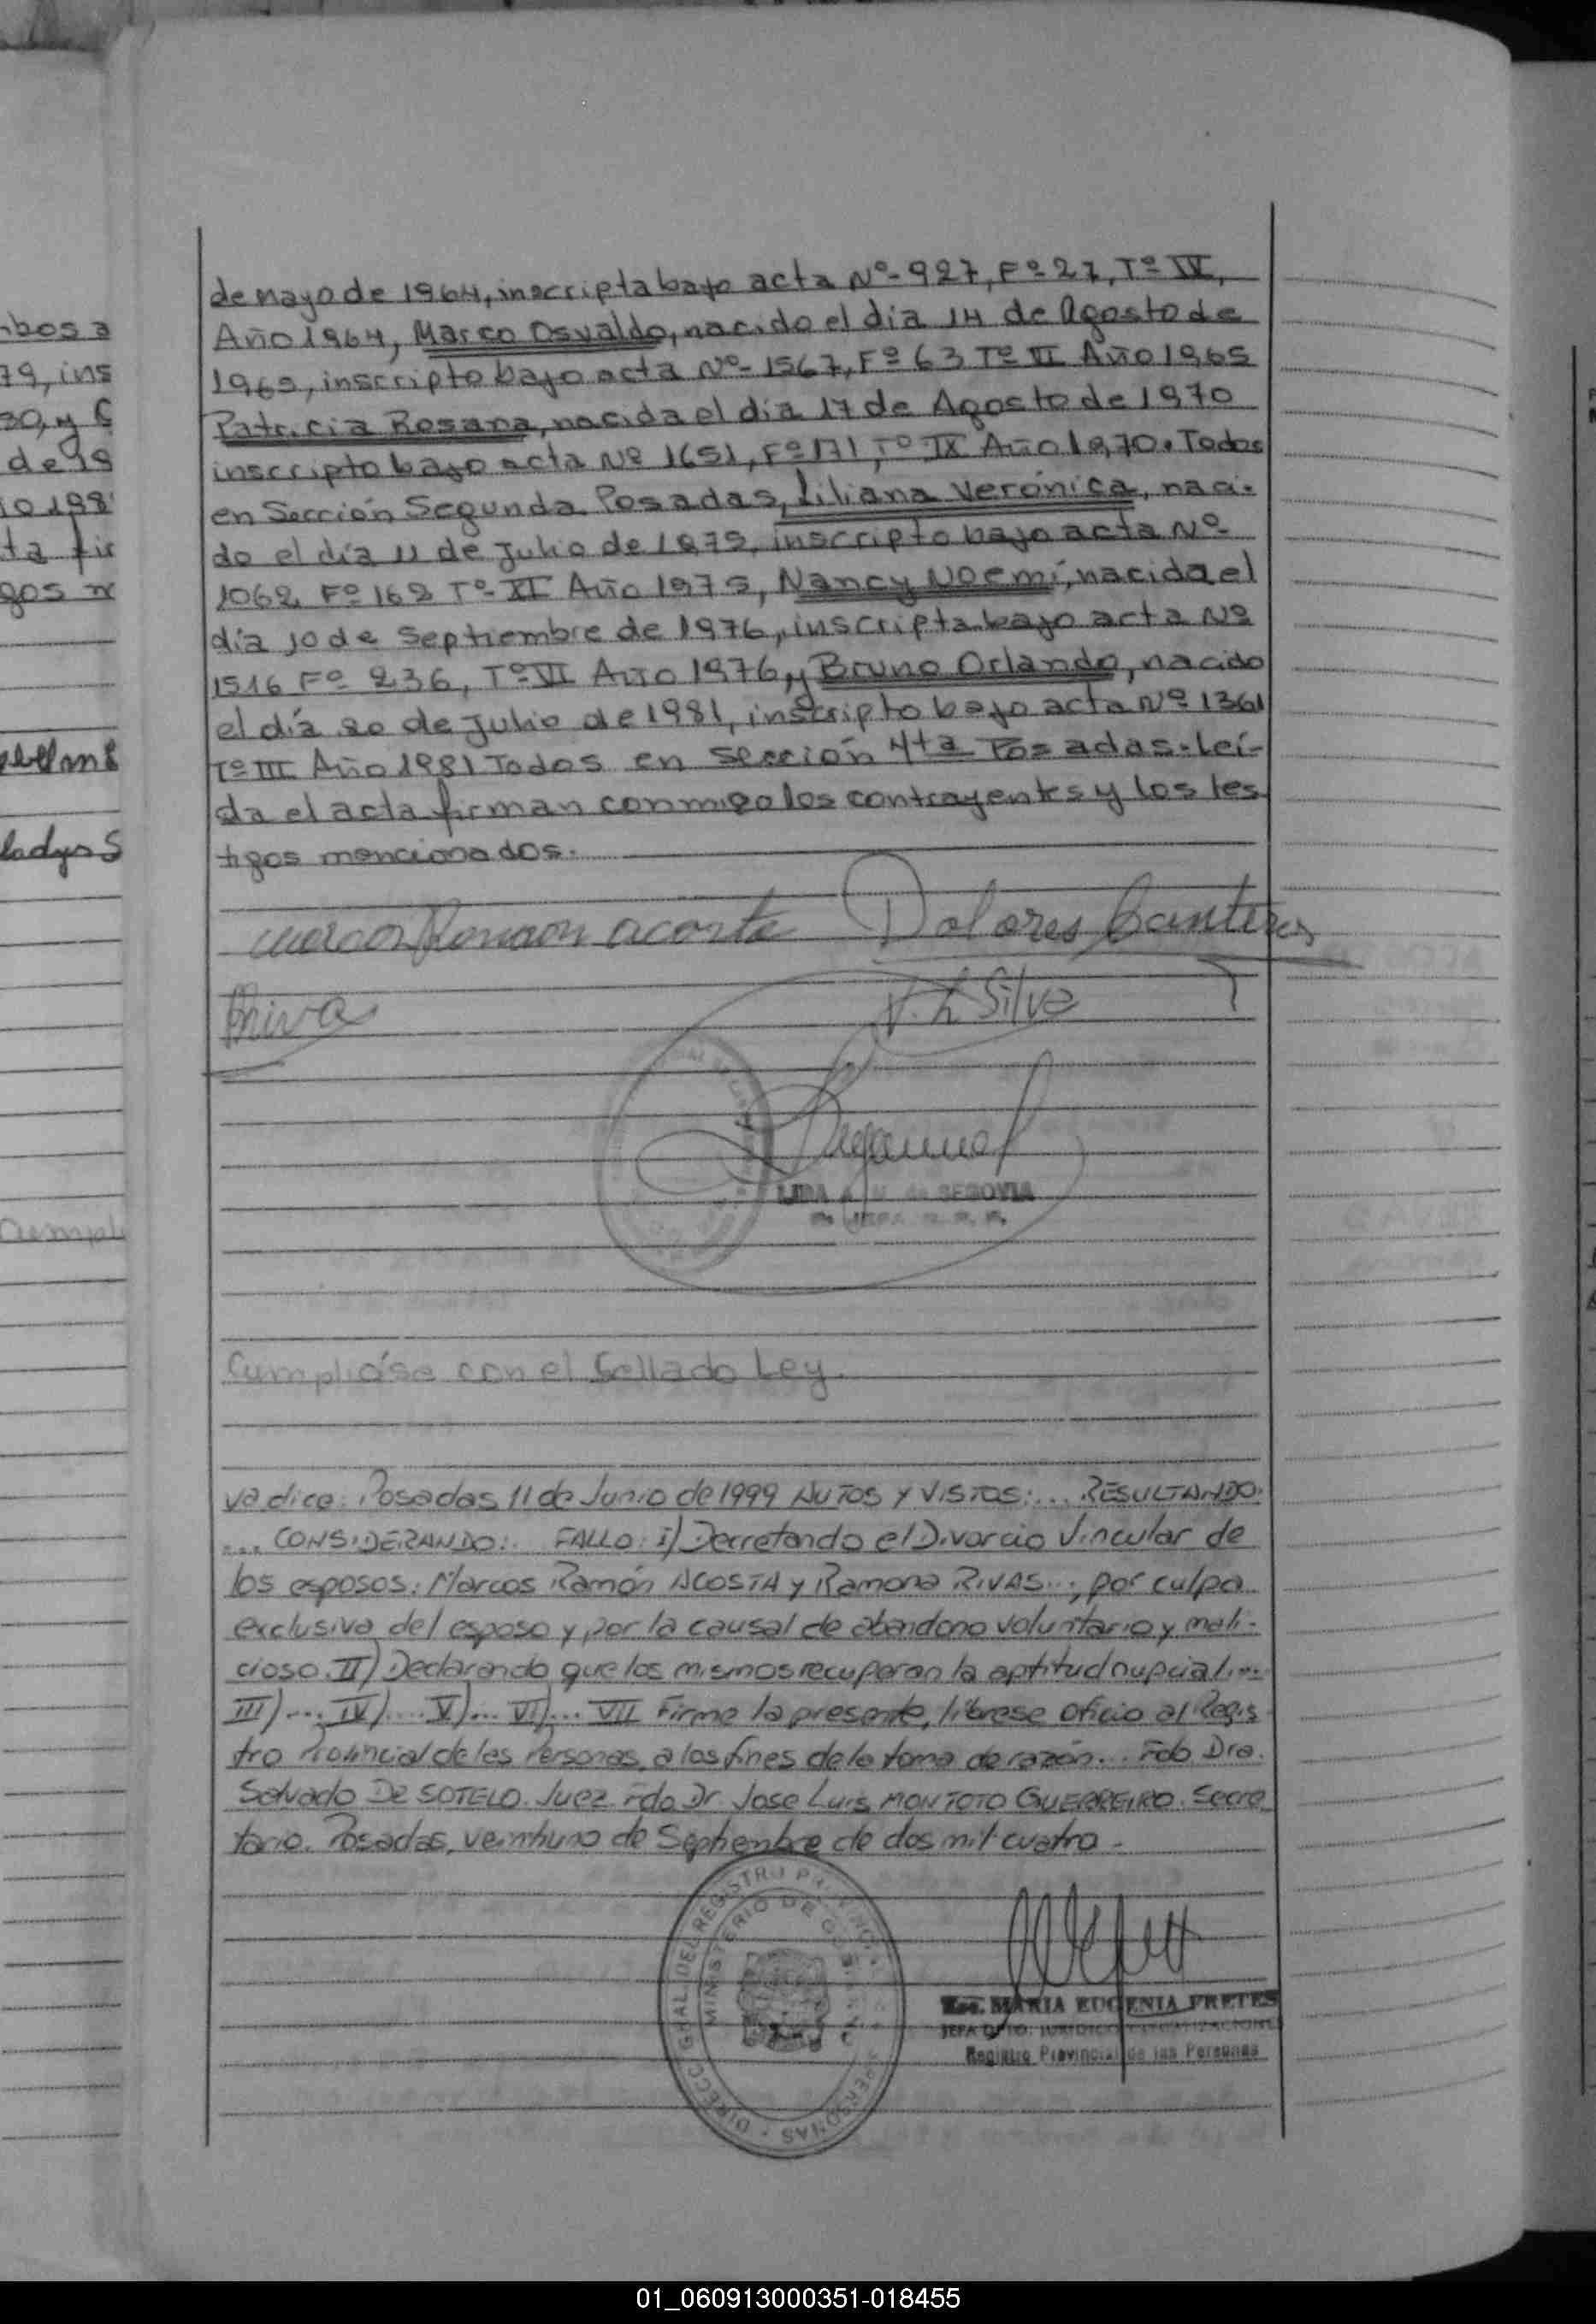 de mayo de 1964, inscripta bajo acta Nº 927, Fº 27, Tº IV,
Año 1964, Marco Osvaldo, nacido el día 14 de Agosto de
1965, inscripto bajo acta Nº 1567, Fº 63 Tº VI Año 1965
Patricia Rosana, nacida el día 17 de Agosto de 1970
inscripto bajo acta Nº 1651, Fº 171, Tº IX Año 1970. Todos
en Sección Segunda Posadas, Liliana Verónica, naci-
do el día 11 de Julio de 1975, inscripto bajo acta Nº
1062 Fº 162 Tº XI Año 1975, Nancy Noemí, nacida el
día 10 de Septiembre de 1976, inscripta bajo acta Nº
1516 Fº 236, Tº VI Año 1976, y Bruno Orlando, nacido
el día 20 de Julio de 1981, inscripto bajo acta Nº 1361
Tº III Año 1981 Todos en Sección 4ta Posadas. Leí-
da el acta firman conmigo los contrayentes y los tes
tigos mencionados.
marcos Ramon acosta Dolores Canteros
Silva
de SEGOVIA
Cumplióse con el Sellado Ley.
va dice: Posadas 11 de Junio de 1999 AUTOS Y VISTOS:... RESULTANDO:
... CONSIDERANDO:. FALLO: I) Decretando el Divorcio Vincular de
los esposos: Marcos Ramón ACOSTA y Ramona RIVAS..., por culpa
exclusiva del esposo y por la causal de abandono voluntario y mali-
cioso. II) Declarando que los mismos recuperan la aptitud nupcial...
III)... IV).... V)... VI)... VII Firme la presente, líbrese oficio al Regis
tro Provincial de las Personas, a los fines de la toma de razón... Fdo Dra.
Salvado DE SOTELO. Juez. Fdo Dr. Jose Luis MONTOTO GUERREIRO. Secre
tario. Posadas, veintiuno de Septiembre de dos mil cuatro.-
DIRECC. GRAL. DEL REGISTRO PROVINCIAL PERSONAS
MINISTERIO DE GOBIERNO
MARIA EUGENIA FRETES
JEFA DPTO. JURIDICO Y LEGALIZACIONES
Registro Provincial de las Personas
01_060913000351-018455